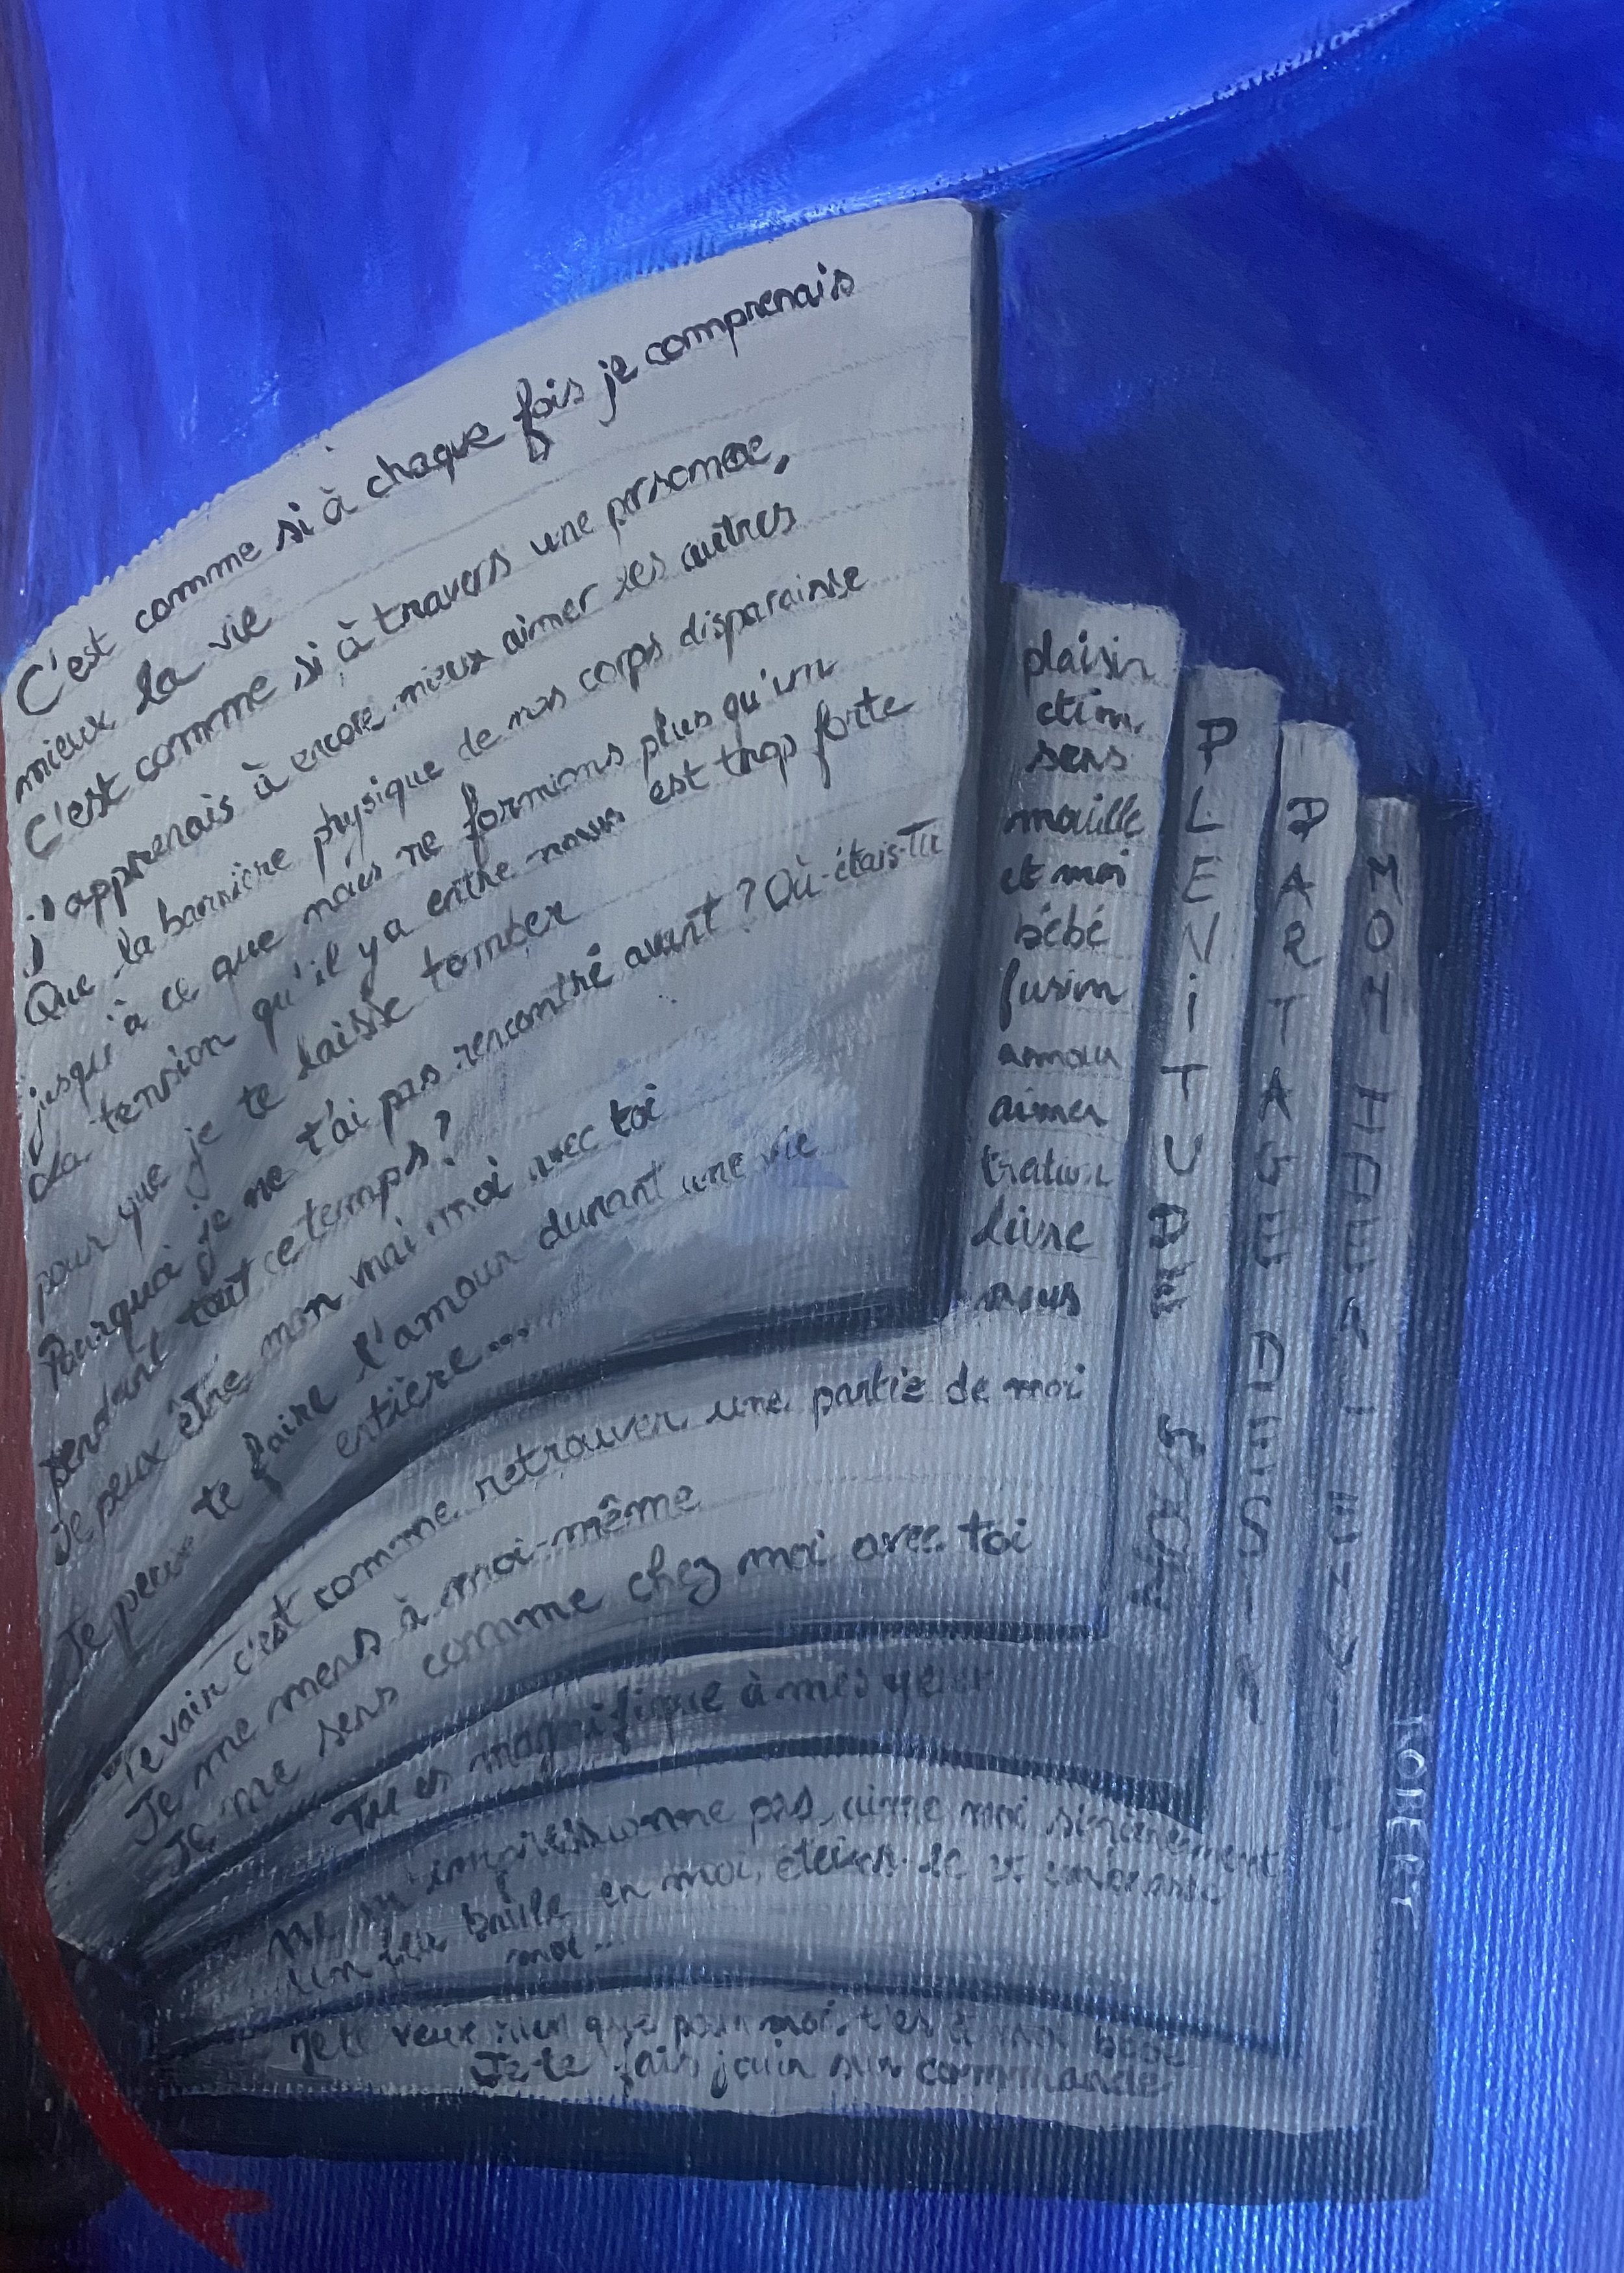 C'est comme si à chaque fois je comprenais
mieux la vie
C'est comme si à travers une personne,
j'apprenais à encore mieux aimer les autres
Que la barrière physique de nos corps disparaisse
jusqu'à ce que nous ne formions plus qu'un
La tension qu'il y a entre nous est trop forte
pour que je te laisse tomber
Pourquoi je ne t'ai pas rencontré avant ? Où étais-Tu
pendant tout ce temps ?
Je peux être mon vrai moi avec toi
Je peux te faire l'amour durant une vie
entière...
plaisir
ction,
sens
mouille
et moi
bébé
fusion
amour
aimer
livre
nous
Te voir c'est comme retrouver une partie de moi
Je me mens à moi-même
Je me sens comme chez moi avec toi
PLENiTUDE
Tu es magnifique à mes yeux
PARTAGE DES
ne m'impressionne pas, aime moi sincèrement
un feu brûle en moi, éteins-le et embrasse
moi...
MON
Je te veux rien que pour moi, t'es à moi bébé
Je te fais jouir sur commande